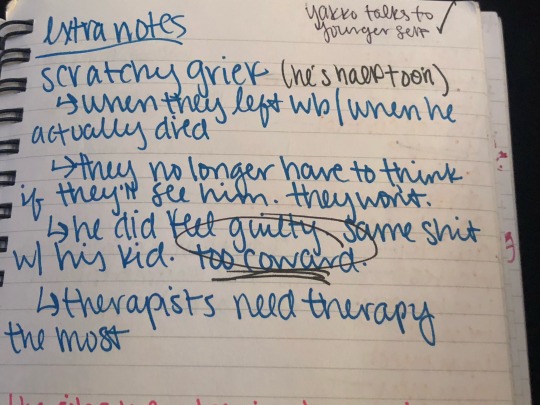 extra notes
yakko talks to
younger self ✓
scratchy grief (he's half toon)
↳ when they left wb/when he
actually died
↳ they no longer have to think
if they'll see him. they won't.
↳ he did feel guilty same shit
w/ his kid. too coward.
↳ therapists need therapy
the most